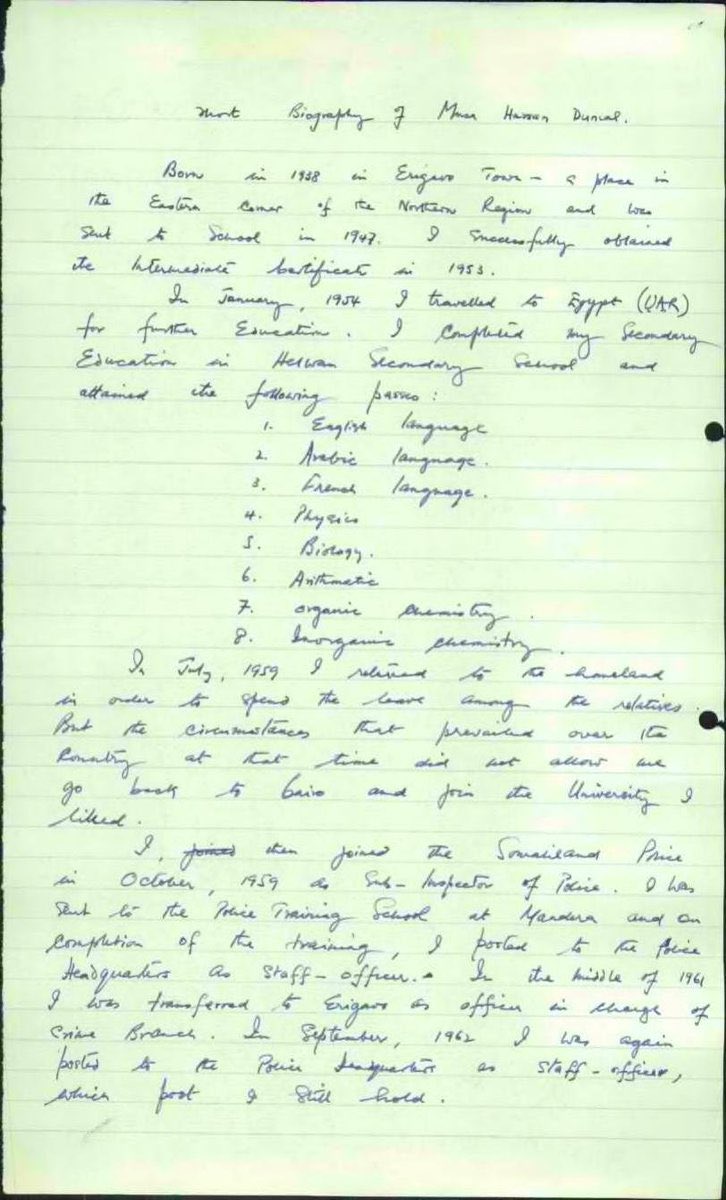 Short Biography of Musa Hassan Duncal.
Born in 1938 in Erigavo Town - a place in
the Eastern corner of the Northern Region and was
sent to School in 1947. I successfully obtained
the Intermediate Certificate in 1953.
In January, 1954 I travelled to Egypt (UAR)
for further Education. I completed my Secondary
Education in Helwan Secondary School and
attained the following passes:
1. English language
2. Arabic language.
3. French language.
4. Physics
5. Biology.
6. Arithmetic
7. organic chemistry.
8. Inorganic chemistry.
In July, 1959 I returned to the homeland
in order to spend the leave among the relatives.
But the circumstances that prevailed over the
Country at that time did not allow me
go back to Cairo and join the University I
liked.
I, joined then joined the Somaliland Police
in October, 1959 as Sub-Inspector of Police. I was
sent to the Police Training School at Mandera and on
completion of the training, I posted to the Police
Headquarters as Staff-officer. In the middle of 1961
I was transferred to Erigavo as officer in charge of
Crime Branch. In September, 1962 I was again
posted to the Police Headquarters as Staff-officer,
which post I still hold.